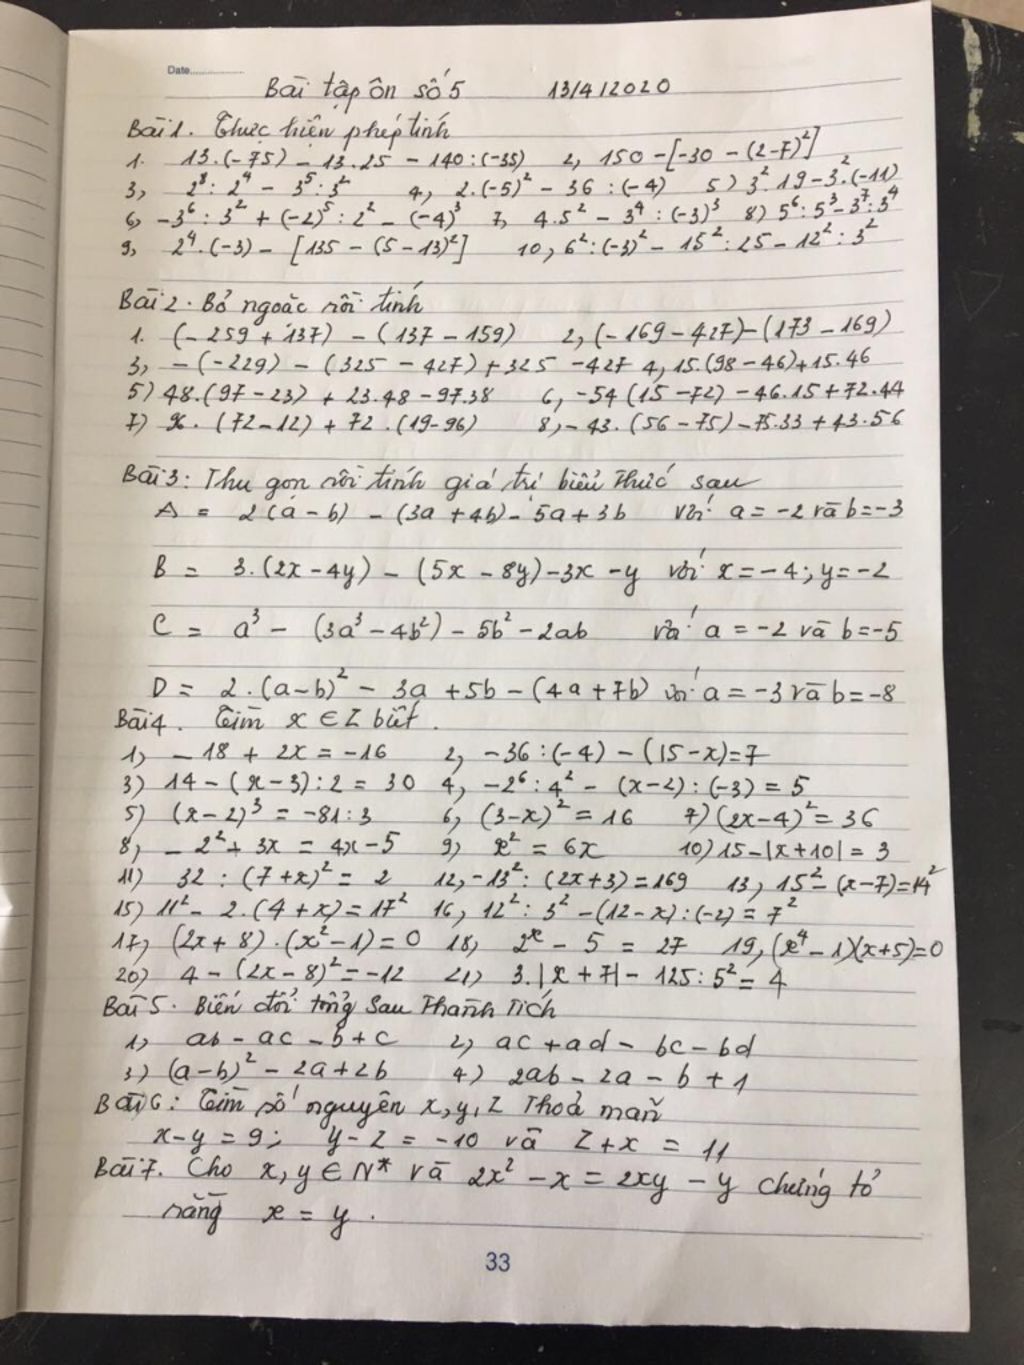 Date
Bài tập ôn số 5 13/4/2020
Bài 1. Thực hiện phép tính
1. 13.(-75) - 13.25 - 140:(-35) 2, 150 - [-30 - (2-7)²]
3, 2⁸: 2⁴ - 3⁵: 3² 4, 2.(-5)² - 36 : (-4) 5) 3².19 - 3².(-11)
6, -3⁶: 3² + (-2)⁵: 2² - (-4)³ 7, 4.5² - 3⁴ : (-3)³ 8) 5⁶: 5³ - 3⁷: 3⁴
9, 2⁴.(-3) - [135 - (5-13)²] 10, 6²:(-3)² - 15²: 25 - 12² : 3²
Bài 2. Bỏ ngoặc rồi tính
1. (-259 + 137) - (137 - 159) 2, (-169 - 427) - (173 - 169)
3, -(-229) - (325 - 427) + 325 - 427 4, 15.(98 - 46) + 15.46
5) 48.(97 - 23) + 23.48 - 97.38 6, -54(15 - 72) - 46.15 + 72.44
7) 96.(72 - 12) + 72.(19 - 96) 8, -43.(56 - 75) - 75.33 + 43.56
Bài 3: Thu gọn rồi tính giá trị biểu thức sau
A = 2(a - b) - (3a + 4b) - 5a + 3b với a = -2 và b = -3
B = 3.(2x - 4y) - (5x - 8y) - 3x - y với x = -4; y = -2
C = a³ - (3a³ - 4b²) - 5b² - 2ab với a = -2 và b = -5
D = 2.(a-b)² - 3a + 5b - (4a + 7b) với a = -3 và b = -8
Bài 4. Tìm x ∈ Z biết.
1) -18 + 2x = -16 2, -36 : (-4) - (15 - x) = 7
3) 14 - (x - 3) : 2 = 30 4, -2⁶ : 4² - (x - 2) : (-3) = 5
5) (x - 2)³ = -81 : 3 6, (3-x)² = 16 7) (2x - 4)² = 36
8, -2² + 3x = 4x - 5 9) x² = 6x 10) 15 - |x + 10| = 3
11) 32 : (7 + x)² = 2 12, -13² : (2x + 3) = 169 13, 15² - (x - 7) = 14²
15) 11² - 2.(4 + x) = 17² 16, 12² : 3² - (12 - x) : (-2) = 7²
17, (2x + 8).(x² - 1) = 0 18, 2ˣ - 5 = 27 19, (x⁴ - 1)(x + 5) = 0
20) 4 - (2x - 8)² = -12 21) 3.|x + 7| - 125 : 5² = 4
Bài 5. Biến đổi tổng sau thành tích
1) ab - ac - b + c 2) ac + ad - bc - bd
3) (a - b)² - 2a + 2b 4) 2ab - 2a - b + 1
Bài 6: Tìm số nguyên x, y, z thoả mãn
x - y = 9; y - z = -10 và z + x = 11
Bài 7. Cho x, y ∈ N* và 2x² - x = 2xy - y chứng tỏ
rằng x = y.
33